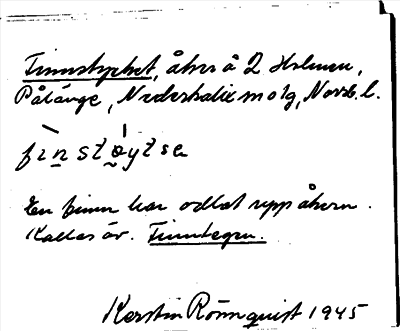 Finnstycket, åker å 2 Holmen,
Pålänge, Nederkalix m o lg, Norrb. l.
fìnstǿytse
En finne har odlat upp åkern.
Kallas äv. Finntegen.
Kerstin Rönnquist 1945